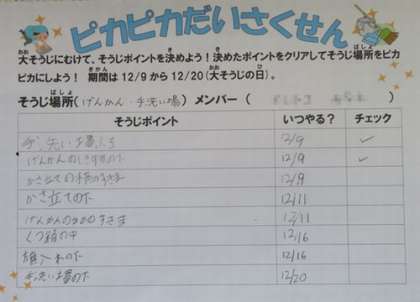 ピカピカだいさくせん
大そうじにむけて、そうじポイントを決めよう！決めたポイントをクリアしてそうじ場所をピカ
ピカにしよう！ 期間は 12/9 から 12/20（大そうじの日）。
そうじ場所（げんかん・手洗い場） メンバー（
そうじポイント いつやる？ チェック
手洗い場 12/9 ✓
げんかんの 12/9 ✓
かさ立ての 12/9
かさ立ての下 12/11
げんかんの すきま 12/11
くつ箱の中 12/16
の下 12/16
手洗い場の下 12/20